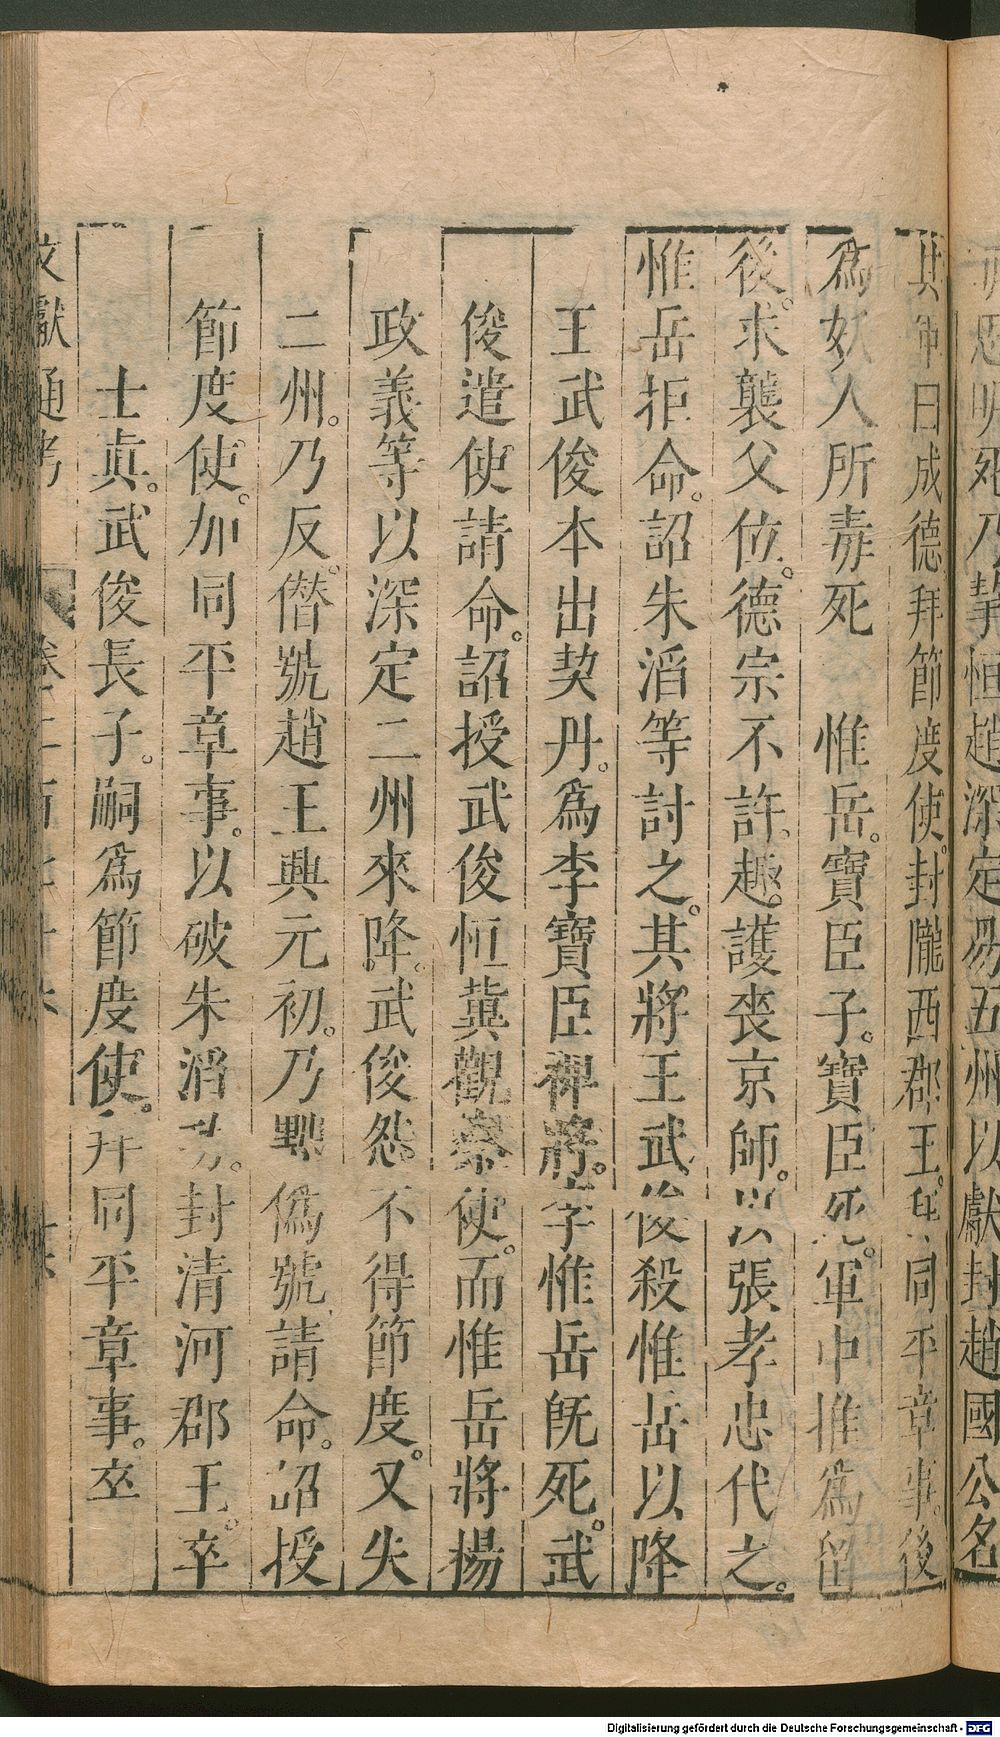 思明死乃挈恒趙深定易五州以獻封趙國公名
其軍曰成德拜節度使封隴西郡王同平章事後
為妖人所毒死　惟岳寶臣子寶臣死軍中推為留
後求襲父位德宗不許趣護喪京師以張孝忠代之
惟岳拒命詔朱滔等討之其將王武俊殺惟岳以降
王武俊本出契丹為李寶臣裨將惟岳既死武
俊遣使請命詔授武俊恒冀觀察使而惟岳將楊
政義等以深定二州來降武俊怨不得節度又失
二州乃反僭號趙王興元初乃黜偽號請命詔授
節度使加同平章事以破朱滔功封清河郡王卒
士真武俊長子嗣為節度使拜同平章事卒
文獻通考
Digitalisierung gefördert durch die Deutsche Forschungsgemeinschaft - DFG